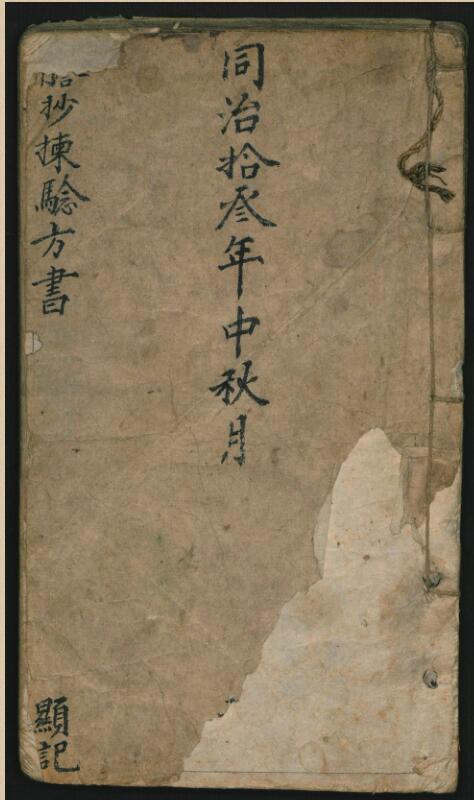 同治拾叄年中秋月
抄揀驗方書
顯記